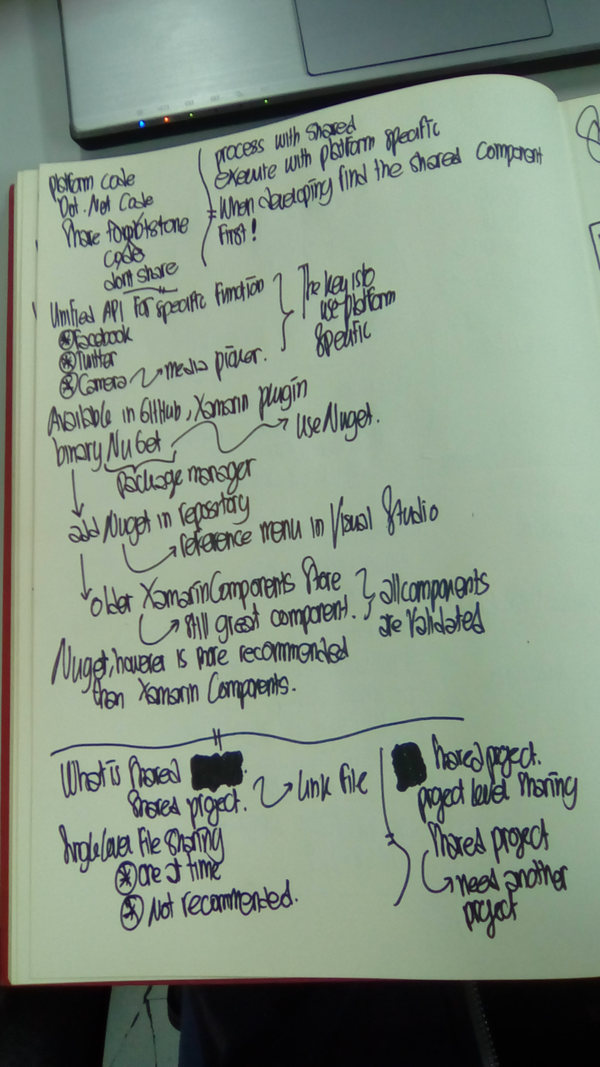 Platform code
Dot. Net Code
Share
code
dont share
process with shared
execute with platform specific
When developing find the shared component
First!
Unified API For specific function
Facebook
Twitter
Camera media picker.
The key is to
use platform
specific
Available in GitHub, Xamarin plugin
binary NuGet use Nuget.
package manager
add Nuget in repository
reference menu in Visual Studio
older Xamarin Components Store
still great component.
all components
are validated
Nuget, however is more recommended
than Xamarin Components.
What is Shared
Shared project. Link File
Single level File Sharing
one at time
Not recommended.
Shared project.
project level sharing
Shared project
need another
project